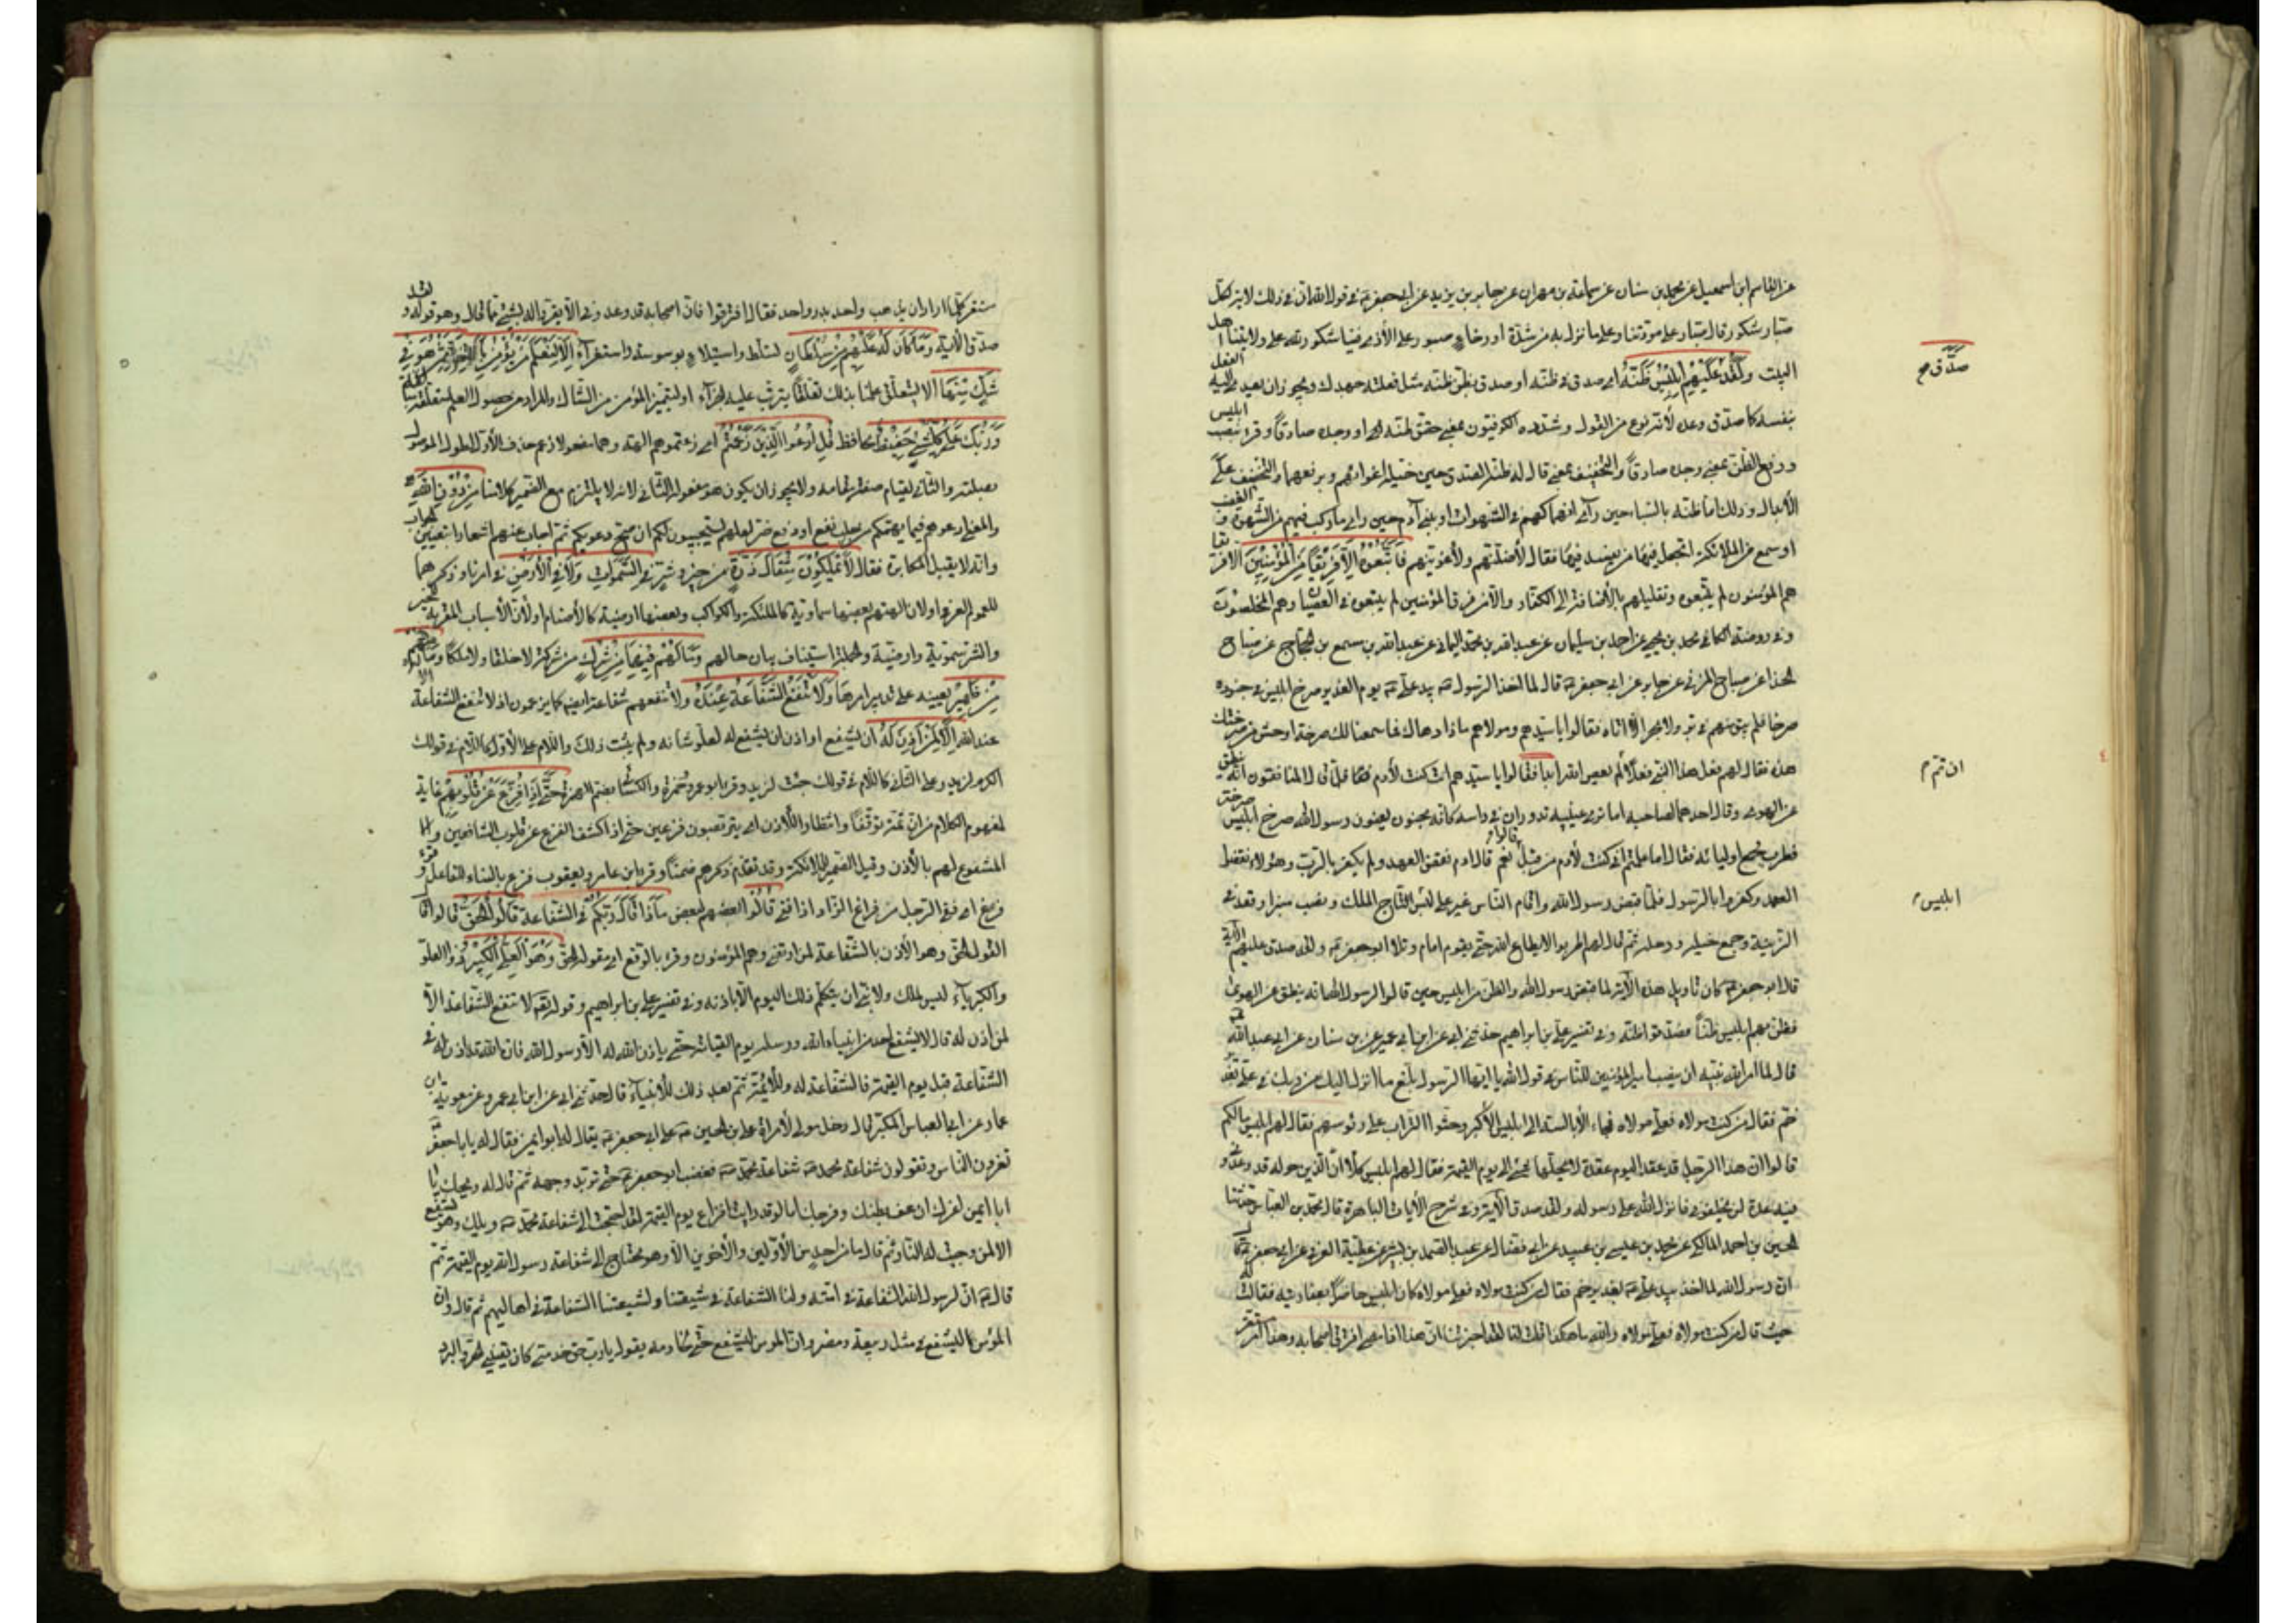 عن القاسم ابن اسمعيل عن محمد بن سنان عن سماعة بن مهران عن جابر بن يزيد عن ابى جعفر ع فى قول الله ان فى ذلك لايت لكل
صبار شكور قال صبار على مودتنا وعلى ما نزل به من شدة او رخاء صبور على الأذى فينا شكور لله على ولايتنا اهل
البيت ولقد عليهم ابليس ظنه اى صدق فى ظنه او صدق بظن ظنه مثل فعلته جهدك ويجوز ان يعدى الفعل اليه
صدق صح
بنفسه كما صدق وعده لأنه نوع من القول وشدده الكوفيون بمعنى حقق ظنه او وجده صادقاً وقرء بنصب ابليس
ورفع الظن بمعنى وجده صادقاً والتخفيف بمعنى قال له ظنه الصدق حين خيله اغوائهم وبرفعهما والتخفيف على
الأبدال وذلك اما ظنه بالسباء حين رآى انهماكهم فى الشهوات او ببنى آدم حين راى ما ركب فيهم من الشهوة و الغضب
او سمع من الملائكة اتجعل فيها من يفسد فيها فقال لأضلنهم ولأغوينهم فاتبعوه الا فريقاً من المؤمنين الا فريقا
هم المؤمنون لم يتبعوه وتقليلهم بالأضافة الى الكفار والا من فرق المؤمنين لم يتبعوه فى العصيان وهم المخلصون
وفى روضة الكافى محمد بن يحيى عن احمد بن سليمان عن عبد الله بن محمد اليمانى عن عبد الله بن مسمع بن الحجاج عن صباح
الحذا عن صباح المزنى عن جابر عن ابى جعفر ع قال لما اخذ الرسول ص بيد على ع يوم الغدير صرخ ابليس فى جنوده
صرخة فلم يبق منهم فى بر ولا بحر الا اتاه فقالوا يا سيدهم ومولاهم ماذا دهاك فما سمعنا لك صرخة اوحش من صرختك
هذه فقال لهم فعل هذا النبى فعلاً لم يعص الله ابداً فقالوا يا سيدهم انت كنت لآدم فلما قال المنافقون انه ينطق
ان تم م
عن الهوى وقال احدهما لصاحبه اما ترى عينيه تدوران فى راسه كانه مجنون يعنون رسول الله صرخ ابليس صرخة
فطرب فجمع اوليائه فقال اما علمتم انى كنت لآدم من قبل قالوا نعم قال ادم نقض العهد ولم يكفر بالرب وهؤلاء نقضوا
العهد وكفروا بالرسول فلما قبض رسول الله واقام الناس غير على لبس التاج الملك ونصب منبرا وقعد فى
ابليس
الزينة وجمع خيله ورجله ثم قال لهم اطربوا لا يطاع الله حتى يقوم امام وتلا ابو جعفر ع ولقد صدق عليهم الآية
قال ابو جعفر ع كان تأويل هذه الآية لما قبض رسول الله والظن من ابليس حين قالوا لرسول الله انه ينطق عن الهوى
فظن بهم ابليس ظناً فصدقوا ظنه وفى تفسير على بن ابراهيم حدثنى ابى عن ابن ابى عمير عن ابن سنان عن ابى عبد الله ع
قال لما امر الله نبيه ان ينصب امير المؤمنين للناس فى قول الله يا ايها الرسول بلغ ما انزل اليك من ربك فى على بغدير
خم فقال من كنت مولاه فعلى مولاه فجاء الأبالسة الى ابليس الأكبر وحثوا التراب على رؤسهم فقال لهم ابليس ما لكم
قالوا ان هذا الرجل قد عقد اليوم عقدة لا يحلها شئ الى يوم القيمة فقال لهم ابليس كلا ان الذين حوله قد وعدونى
فيه عدة لن يخلفونى فانزل الله على رسوله ولقد صدق الآية وفى شرح الآيات الباهرة قال محمد بن العباس حدثنا
الحسين بن احمد المالكى عن محمد بن عيسى بن عبيد عن ابن فضال عن عبد الصمد بن بشير عن عطية العوفى عن ابى جعفر ع قال
ان رسول الله لما اخذ بيد على ع بغدير خم فقال من كنت مولاه فعلى مولاه كان ابليس حاضراً بعفاريته فقالت له
حيث قال من كنت مولاه فعلى مولاه والله ما هكذا قلت لنا لقد اخبرتنا ان هذا اذا مضى افترق اصحابه وهذا امر
مستقر كلما اراد ان يذهب واحد بدر واحد فقال افترقوا فان اصحابه قد وعدونى الا يقروا له بشئ مما قال وهو قوله ولقد
صدق الآية وما كان له عليهم من سلطان تسلط واستيلاء بوسوسة واستغراء الا لنعلم من يؤمن بالآخرة ممن هو فى
شك منها الا ليتعلق علمنا بذلك تعلقاً يترتب عليه الجزاء او ليتميز المؤمن من الشاك والمراد من حصول العلم متعلقه
وربك على كل شئ حفيظ محافظ قل ادعوا الذين زعمتم اى زعمتموهم الهة وهما مفعولا زعم حذف الأول لطول الموصول
بصلته والثانى لقيام صفته مقامه ولا يجوز ان يكون هو مفعوله الثانى لانه لا يلتئم مع الضمير كلاما من دون الله
والمعنى ادعوهم فيما يهمكم من جلب نفع او دفع ضر لعلهم يستجيبون لكم ان صح دعويكم ثم اجاب عنهم اشعاراً بتعيين الجواب
وانه لا يقبل المكابرة فقال لا يملكون مثقال ذرة من خير وشر فى السموات ولا فى الأرض فى امر ما وذكرهما
للعموم العرفى او لان الهتهم بعضها سماوية كالملئكة والكواكب وبعضها ارضية كالأصنام او لأن الأسباب القريبة للخير
والشر سموية وارضية والجملة استيناف بيان حالهم وما لهم فيهما من شرك من شركة لا خلقاً ولا ملكاً وما له منهم
من ظهير يعينه على تدبير امرهما ولا تنفع الشفاعة عنده ولا تنفعهم شفاعة ايضاً كما يزعمون اذ لا تنفع الشفاعة
عند الله الا لمن اذن له ان يشفع او اذن ان يشفع له لعلو شانه ولم يثبت ذلك واللام على الأول كاللام فى قولك
الكرم لزيد وعلى الثانى كاللام فى قولك جئت لزيد وقرء ابو عمرو وحمزة والكسائى بضم الهمزة حتى اذا فزع عن قلوبهم غاية
لمفهوم الكلام من ان ثمة توقفاً وانتظاراً للأذن اى يتربصون فزعين حتى اذا كشف الفزع عن قلوب الشافعين و
المشفوع لهم بالأذن وقيل الضمير للملائكة وقد تقدم ذكرهم ضمناً وقرء ابن عامر ويعقوب فزع بالبناء للفاعل وقرء
فرغ اى نفى الوجل من فراغ الزاد اذا فنى قالوا قال بعضهم لبعض ماذا قال ربكم فى الشفاعة قالوا الحق قالوا قال
القول الحق وهو الأذن بالشفاعة لمن ارتضى وهم المؤمنون وقرء بالرفع اى مقوله الحق وهو العلى الكبير ذو العلو
والكبرياء ليس لملك ولا نبى ان يتكلم ذلك اليوم الا باذنه وفى تفسير على بن ابراهيم وقوله لا تنفع الشفاعة الا
لمن اذن له قال لا يشفع احد من انبياء الله ورسله يوم القيامة حتى ياذن الله له الا رسول الله فان الله قد اذن له فى
الشفاعة قبل يوم القيمة فالشفاعة له وللأئمة ثم بعد ذلك للأنبياء قال حدثنى ابى عن ابن ابى عمير عن معوية بن
عمار عن ابى العباس المكبر قال دخل مولى لأمرأة على بن الحسين ع على ابى جعفر ع يقال له ابو ايمن فقال له يا با جعفر
تغرون الناس وتقولون شفاعة محمد ص شفاعة محمد ص فغضب ابو جعفر ع حتى تربد وجهه ثم قال له ويحك يا
ابا ايمن اغرك ان عف بطنك وفرجك اما لو قد رايت افزاع يوم القيمة لقد احتجت الى شفاعة محمد ص ويلك وهل يشفع
الا لمن وجبت له النار ثم قال ما من احد من الأولين والأخرين الا وهو محتاج الى شفاعة رسول الله يوم القيمة ثم
قال ع ان لرسول الله الشفاعة فى امته ولنا الشفاعة فى شيعتنا ولشيعتنا الشفاعة فى اهاليهم ثم قال وان
المؤمن ليشفع فى مثل ربيعة ومضر وان المؤمن ليشفع حتى لخادمه يقول يا رب حق خدمتى كان يقينى الحر والبرد